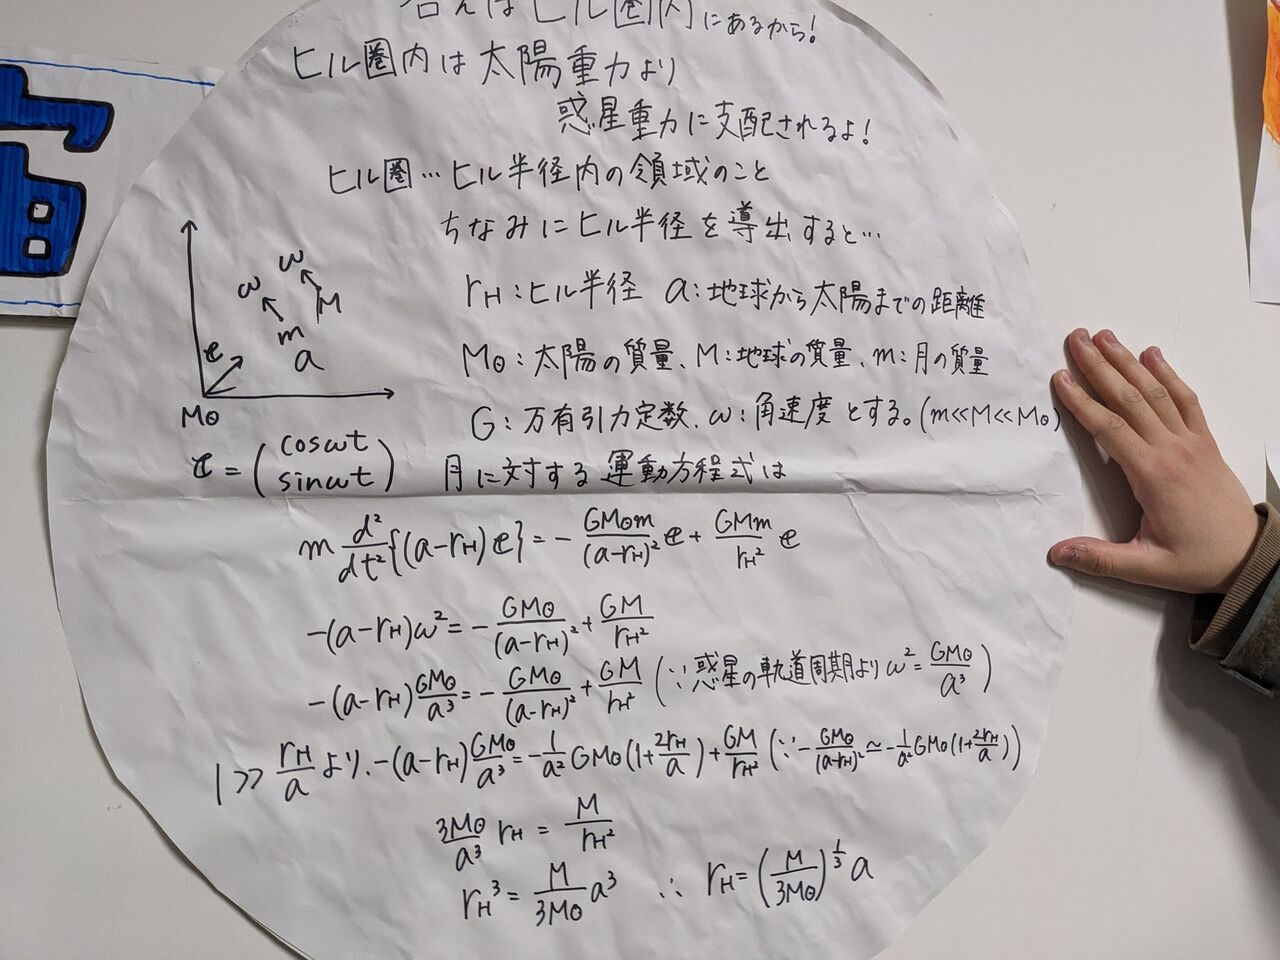 答えはヒル圏内にあるから!
ヒル圏内は太陽重力より
惑星重力に支配されるよ!
ヒル圏…ヒル半径内の領域のこと
ちなみにヒル半径を導出すると…
rH:ヒル半径 a:地球から太陽までの距離
M⊙:太陽の質量、M:地球の質量、m:月の質量
G:万有引力定数、ω:角速度とする。(m<<M<<M⊙)
ω
ω
M
m
a
e
M⊙
e = (cosωt sinωt) 月に対する運動方程式は
m d²/dt² {(a-rH)e} = - GM⊙m/(a-rH)² e + GMm/rH² e
-(a-rH)ω² = - GM⊙/(a-rH)² + GM/rH²
-(a-rH) GM⊙/a³ = - GM⊙/(a-rH)² + GM/rH² (∵惑星の軌道周期より ω² = GM⊙/a³)
1 >> rH/a より、-(a-rH) GM⊙/a³ = -1/a² GM⊙(1+2rH/a) + GM/rH² (∵ - GM⊙/(a-rH)² ≃ -1/a² GM⊙(1+2rH/a))
3M⊙/a³ rH = M/rH²
rH³ = M/3M⊙ a³ ∴ rH = (M/3M⊙)^1/3 a